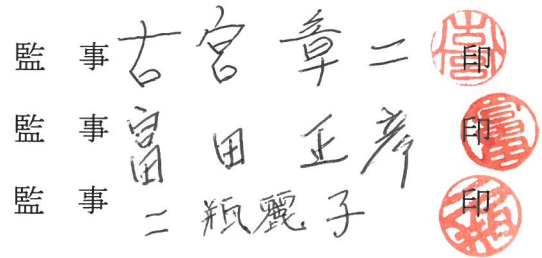 監 事 古宮 章二 印
監 事 富田 正彦 印
監 事 二瓶麗子 印